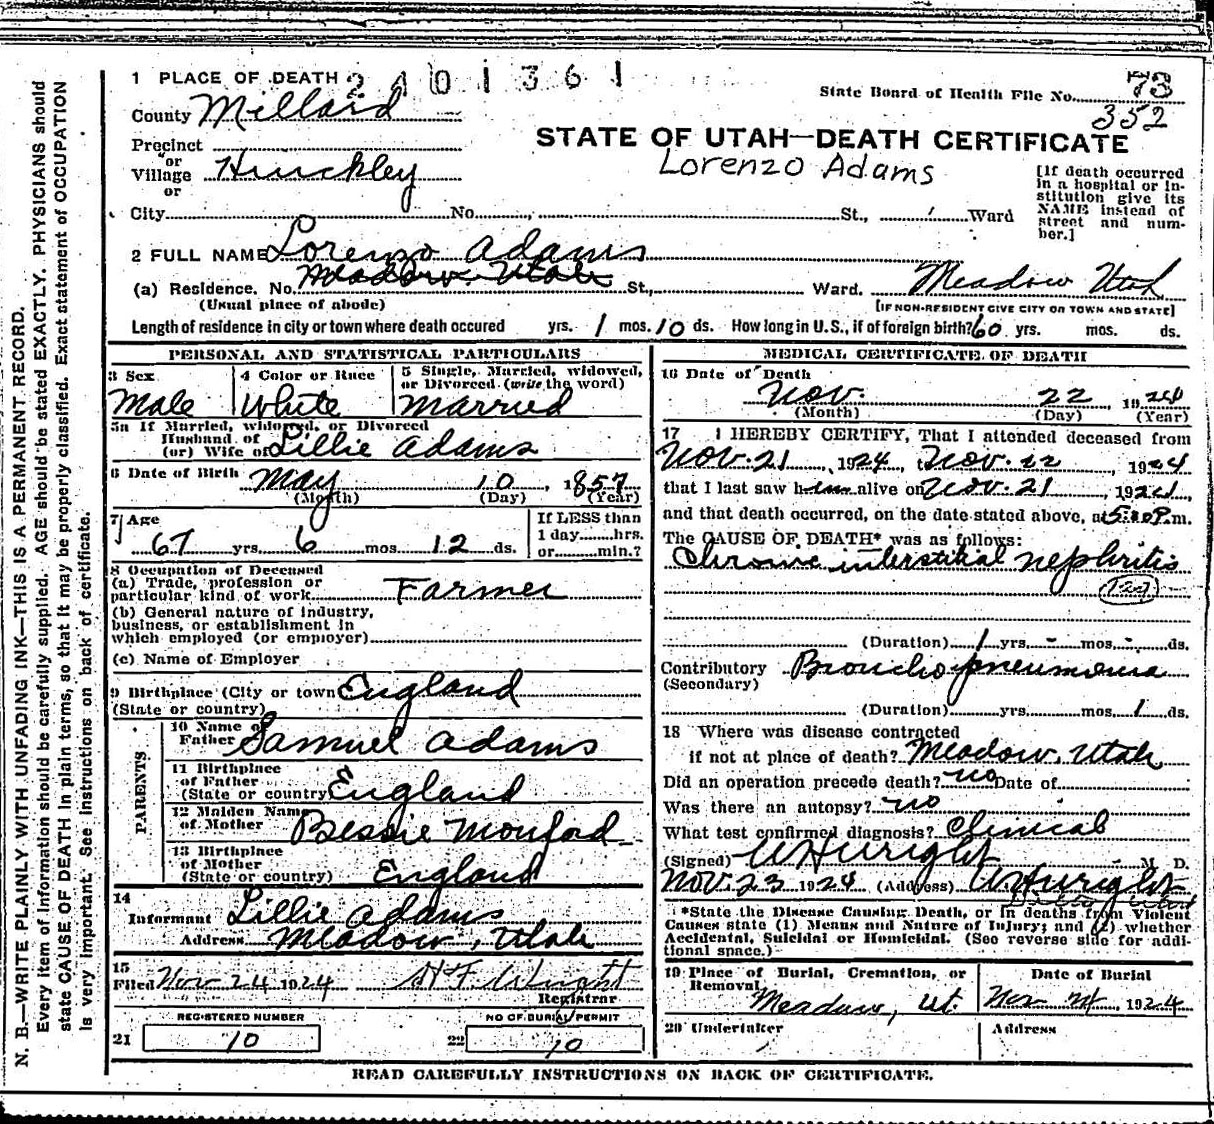 N. B.—WRITE PLAINLY WITH UNFADING INK—THIS IS A PERMANENT RECORD.
Every item of information should be carefully supplied. AGE should be stated EXACTLY. PHYSICIANS should
state CAUSE OF DEATH in plain terms, so that it may be properly classified. Exact statement of OCCUPATION
is very important. See instructions on back of certificate.
1 PLACE OF DEATH 2401361
State Board of Health File No. 73
352
County Millard
STATE OF UTAH—DEATH CERTIFICATE
Lorenzo Adams
Precinct
or
Village Hinckley
or
City No. St., Ward
[If death occurred
in a hospital or in-
stitution give its
NAME instead of
street and num-
ber.]
2 FULL NAME Lorenzo Adams
Meadow. Utah
(a) Residence. No. St., Ward. Meadow Utah
(Usual place of abode) [IF NON-RESIDENT GIVE CITY OR TOWN AND STATE]
Length of residence in city or town where death occured yrs. 1 mos. 10 ds. How long in U.S., if of foreign birth? 60 yrs. mos. ds.
PERSONAL AND STATISTICAL PARTICULARS
3 Sex 4 Color or Race 5 Single, Married, widowed,
or Divorced (write the word)
Male White Married
5a If Married, widowed, or Divorced
Husband of
(or) Wife of Lillie Adams
6 Date of Birth May 10, 1857
(Month) (Day) (Year)
7 Age
67 yrs. 6 mos. 12 ds.
If LESS than
1 day hrs.
or min.?
8 Occupation of Deceased
(a) Trade, profession or
particular kind of work Farmer
(b) General nature of industry,
business, or establishment in
which employed (or employer)
(c) Name of Employer
9 Birthplace (City or town England
(State or country)
PARENTS
10 Name of
Father Samuel Adams
11 Birthplace
of Father
(State or country England
12 Maiden Name
of Mother Bessie Monford
13 Birthplace
of Mother
(State or country) England
14
Informant Lillie Adams
Address Meadow, Utah
15
Filed Nov 24 1924 Registrar
REGISTERED NUMBER NO OF BURIAL PERMIT
21 10 22 10
MEDICAL CERTIFICATE OF DEATH
16 Date of Death
Nov. 22, 1924
(Month) (Day) (Year)
17 I HEREBY CERTIFY, That I attended deceased from
Nov. 21, 1924, t Nov. 22, 1924
that I last saw him alive on Nov. 21, 1924,
and that death occurred, on the date stated above, at P.m.
The CAUSE OF DEATH* was as follows:
Chronic interstitial nephritis
(Duration) 1 yrs. - mos. - ds.
Contributory Broncho pneumonia
(Secondary)
(Duration) yrs. mos. 1 ds.
18 Where was disease contracted
if not at place of death? Meadow, Utah
Did an operation precede death? no Date of
Was there an autopsy? no
What test confirmed diagnosis? Clinical
(Signed) M. D.
Nov. 23 1924 (Address)
*State the Disease Causing Death, or in deaths from Violent
Causes state (1) Means and Nature of Injury; and (2) whether
Accidental, Suicidal or Homicidal. (See reverse side for addi-
tional space.)
19 Place of Burial, Cremation, or
Removal Meadow, Ut.
Date of Burial
Nov 24, 1924
20 Undertaker Address
READ CAREFULLY INSTRUCTIONS ON BACK OF CERTIFICATE.